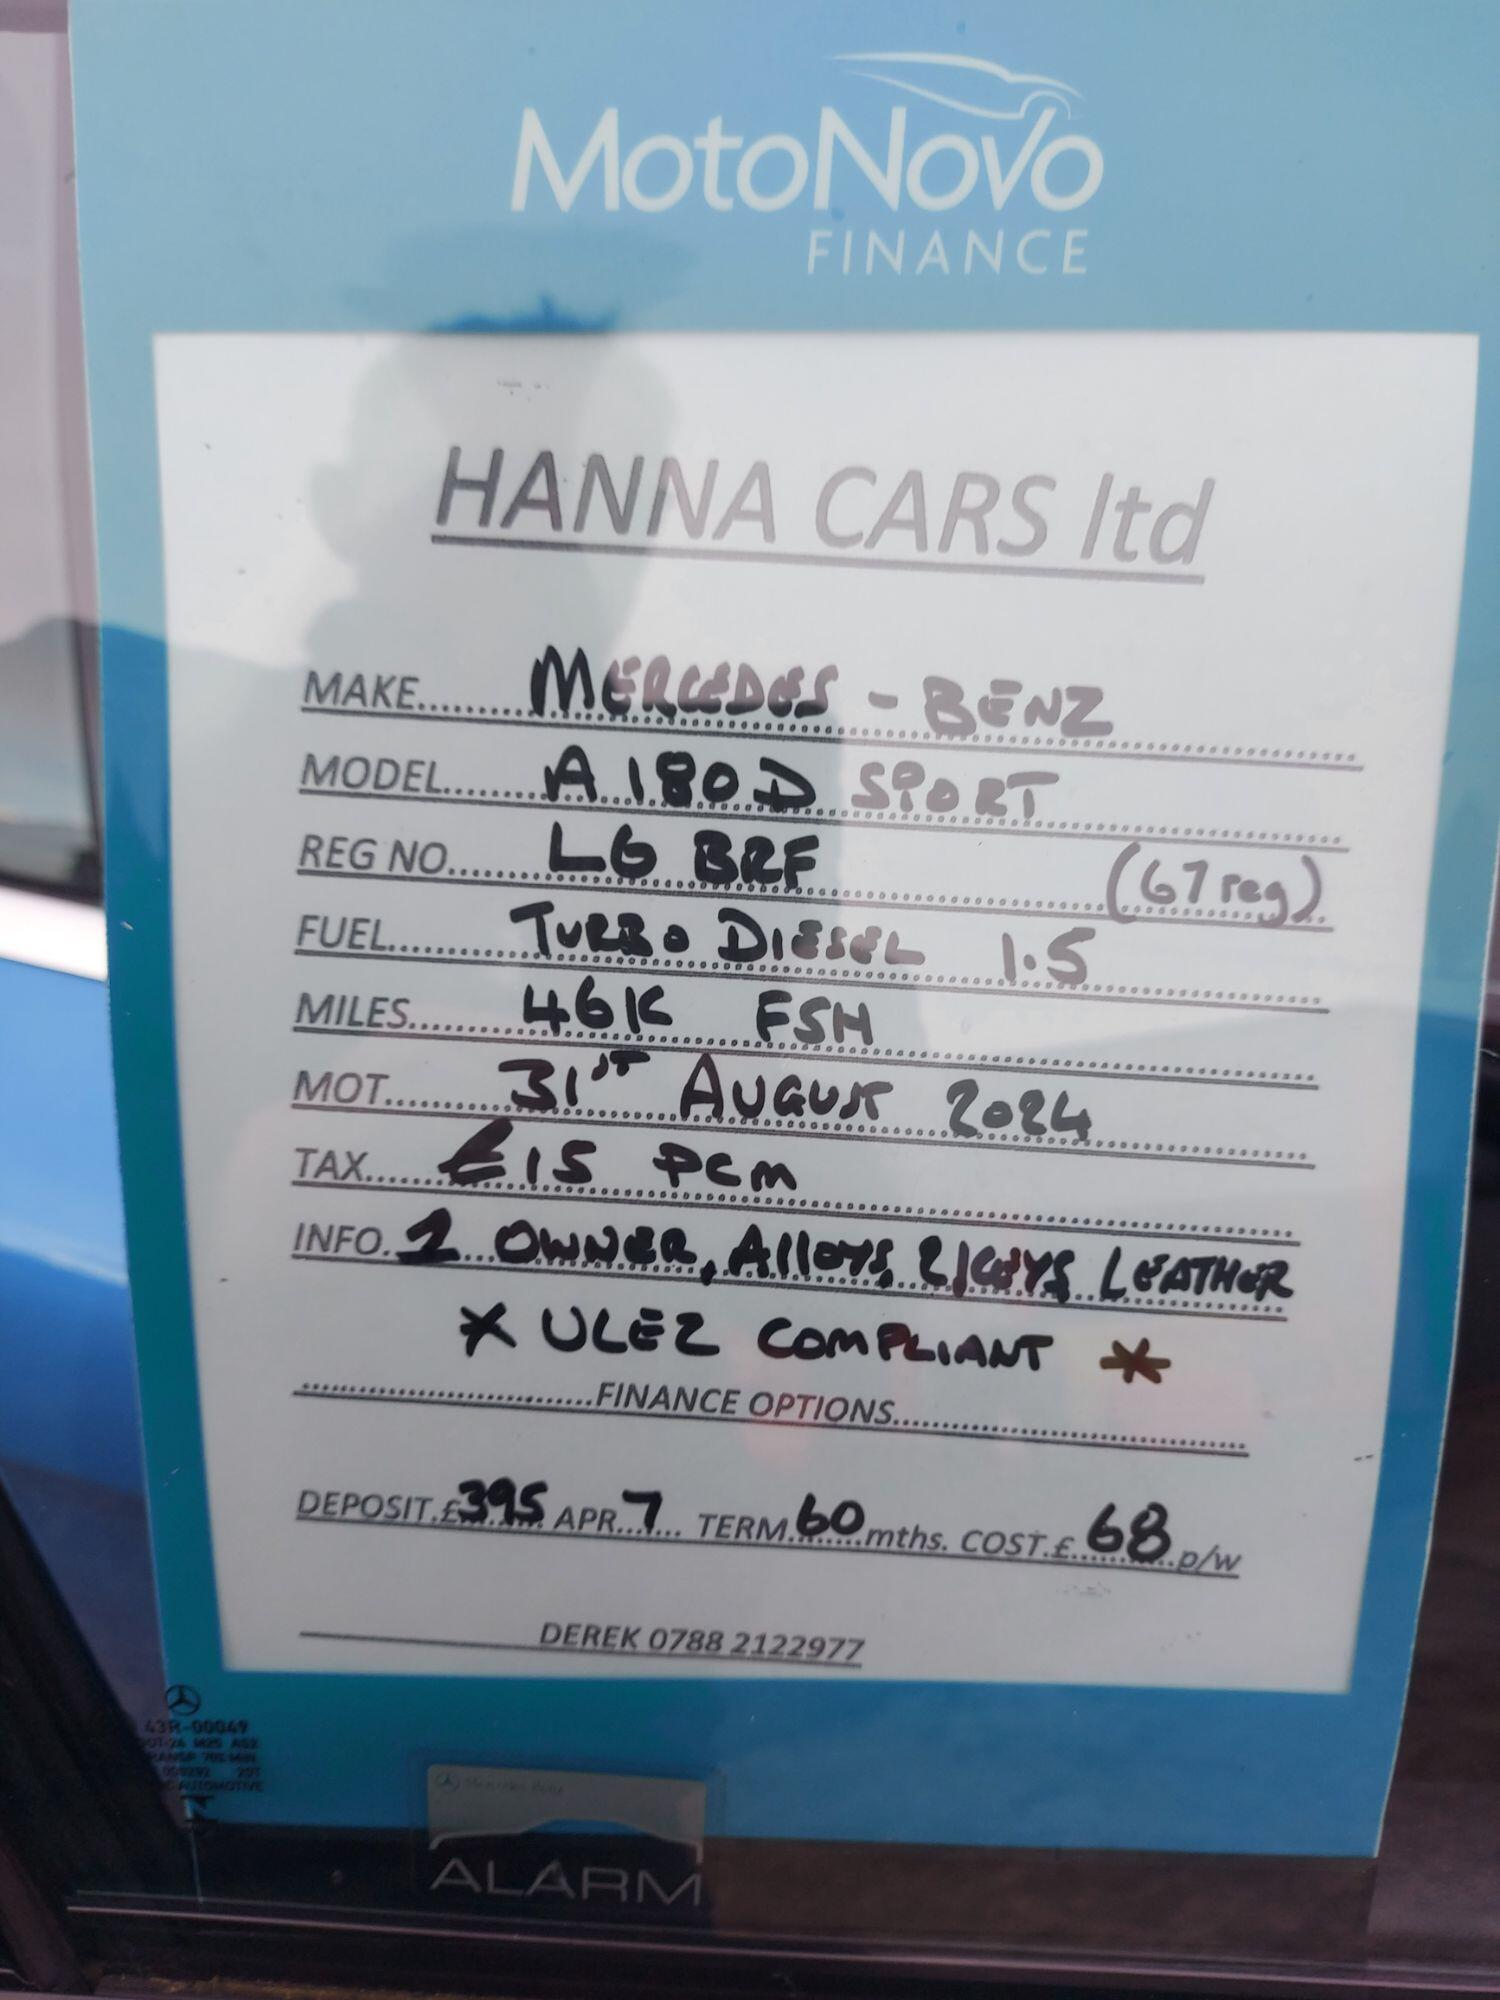 MotoNovo
FINANCE
HANNA CARS ltd
MAKE........MERCEDES - BENZ
MODEL.......A 180D SPORT
REG NO......LG BRF (67 reg)
FUEL........TURBO DIESEL 1.5
MILES.......46K FSH
MOT.........31ST AUGUST 2024
TAX......£15 PCM
INFO.1 OWNER, Alloys, 2 KEYS LEATHER
* ULEZ COMPLIANT *
FINANCE OPTIONS
DEPOSIT.£395 APR...7.... TERM.60 mths. COST.£ 68 p/w
DEREK 0788 2122977
43R-00049
AUTOMOTIVE
Mercedes-Benz
ALARM